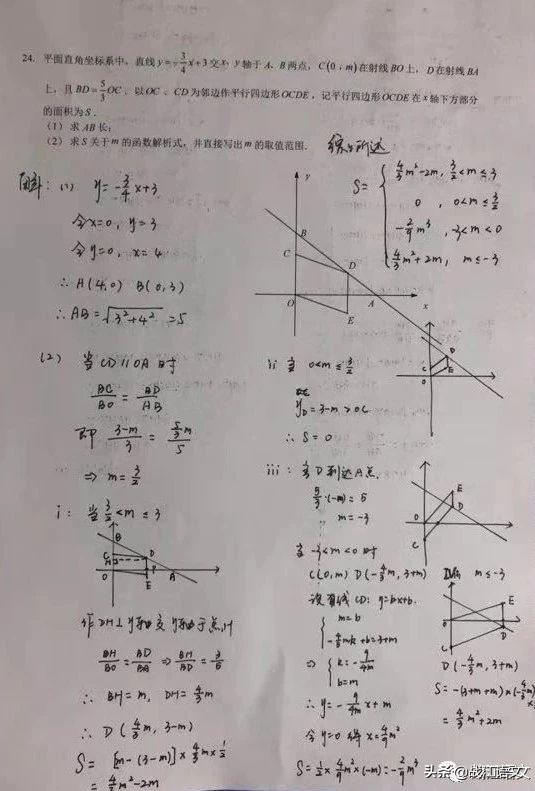 24. 平面直角坐标系中，直线y=-3/4x+3交x、y轴于A、B两点，C(0，m)在射线BO上，D在射线BA
上，且BD=5/3OC，以OC、CD为邻边作平行四边形OCDE，记平行四边形OCDE在x轴下方部分
的面积为S.
(1) 求AB长；
(2) 求S关于m的函数解析式，并直接写出m的取值范围.
综上所述
S= { 4/3m²-2m, 3/2<m≤3
0 , 0<m≤3/2
-2/9m³ , -3<m<0
4/3m²+2m, m≤-3
解: (1) y=-3/4x+3
令x=0, y=3
令y=0, x=4
∴ A(4,0) B(0,3)
∴ AB=√3²+4² =5
y
B
C
D
O
A
x
E
(2) 当CD∥OA时
BC/BO = BD/AB
即 3-m/3 = 5/3m/5
⇒ m=3/2
i: 当3/2<m≤3
B
C
H
D
O
P
A
E
作DH⊥y轴交y轴于点H
BH/BO = BD/BA ⇒ BH/BD = 3/5
∴ BH=m, DH=4/3m
∴ D(4/3m, 3-m)
S= [m-(3-m)]×4/3m×1/2
= 4/3m²-2m
ii 当 0<m≤3/2
yD=3-m>OC
∴ S=0
C
D
O
E
iii: 当D到达A点,
5/3·(-m)=5
m=-3
E
O
D
C
当-3<m<0时
C(0,m) D(-4/3m, 3+m)
设直线CD: y=kx+b.
{ m=b
-4/3mk+b=3+m
⇒ { k=-9/4m
b=m
∴ y=-9/4m x+m
令y=0 得 x=4/9m²
S=1/2×4/9m²×(-m)=-2/9m³
m≤-3
E
O
D
C
D(-4/3m, 3+m)
S=-(3+m+m)×(-4/3m)
= 4/3m²+2m
头条@战江语文